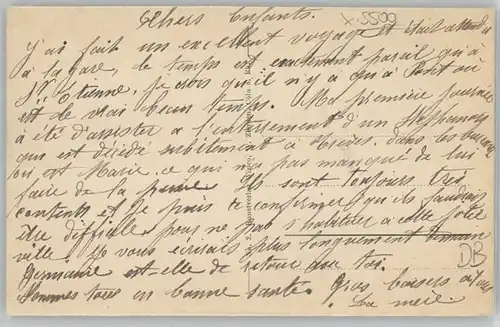 x 5500
Chers Enfants.
J'ai fait un excellent voyage et était attendu
à la gare, le temps est exactement pareil qu'à
St Etienne, je crois qu'il n'y a qu'à
est de vrai beau temps. Ma première journée
à été d'assister a l'enterrement d'un
qui est décédé subitement à dans les bureaux
ou est Marie, ce qui n'a pas manqué de lui
faire de la peine. Ils sont toujours très
contents et je puis te confirmer qu'ils faudrait
être difficile pour ne pas s'habituer à cette jolie
ville. Je vous écrirais plus longuement demain
Germaine est-elle de retour que toi.
Sommes tous en bonne santé. Gros baisers à tous
La mère
DB